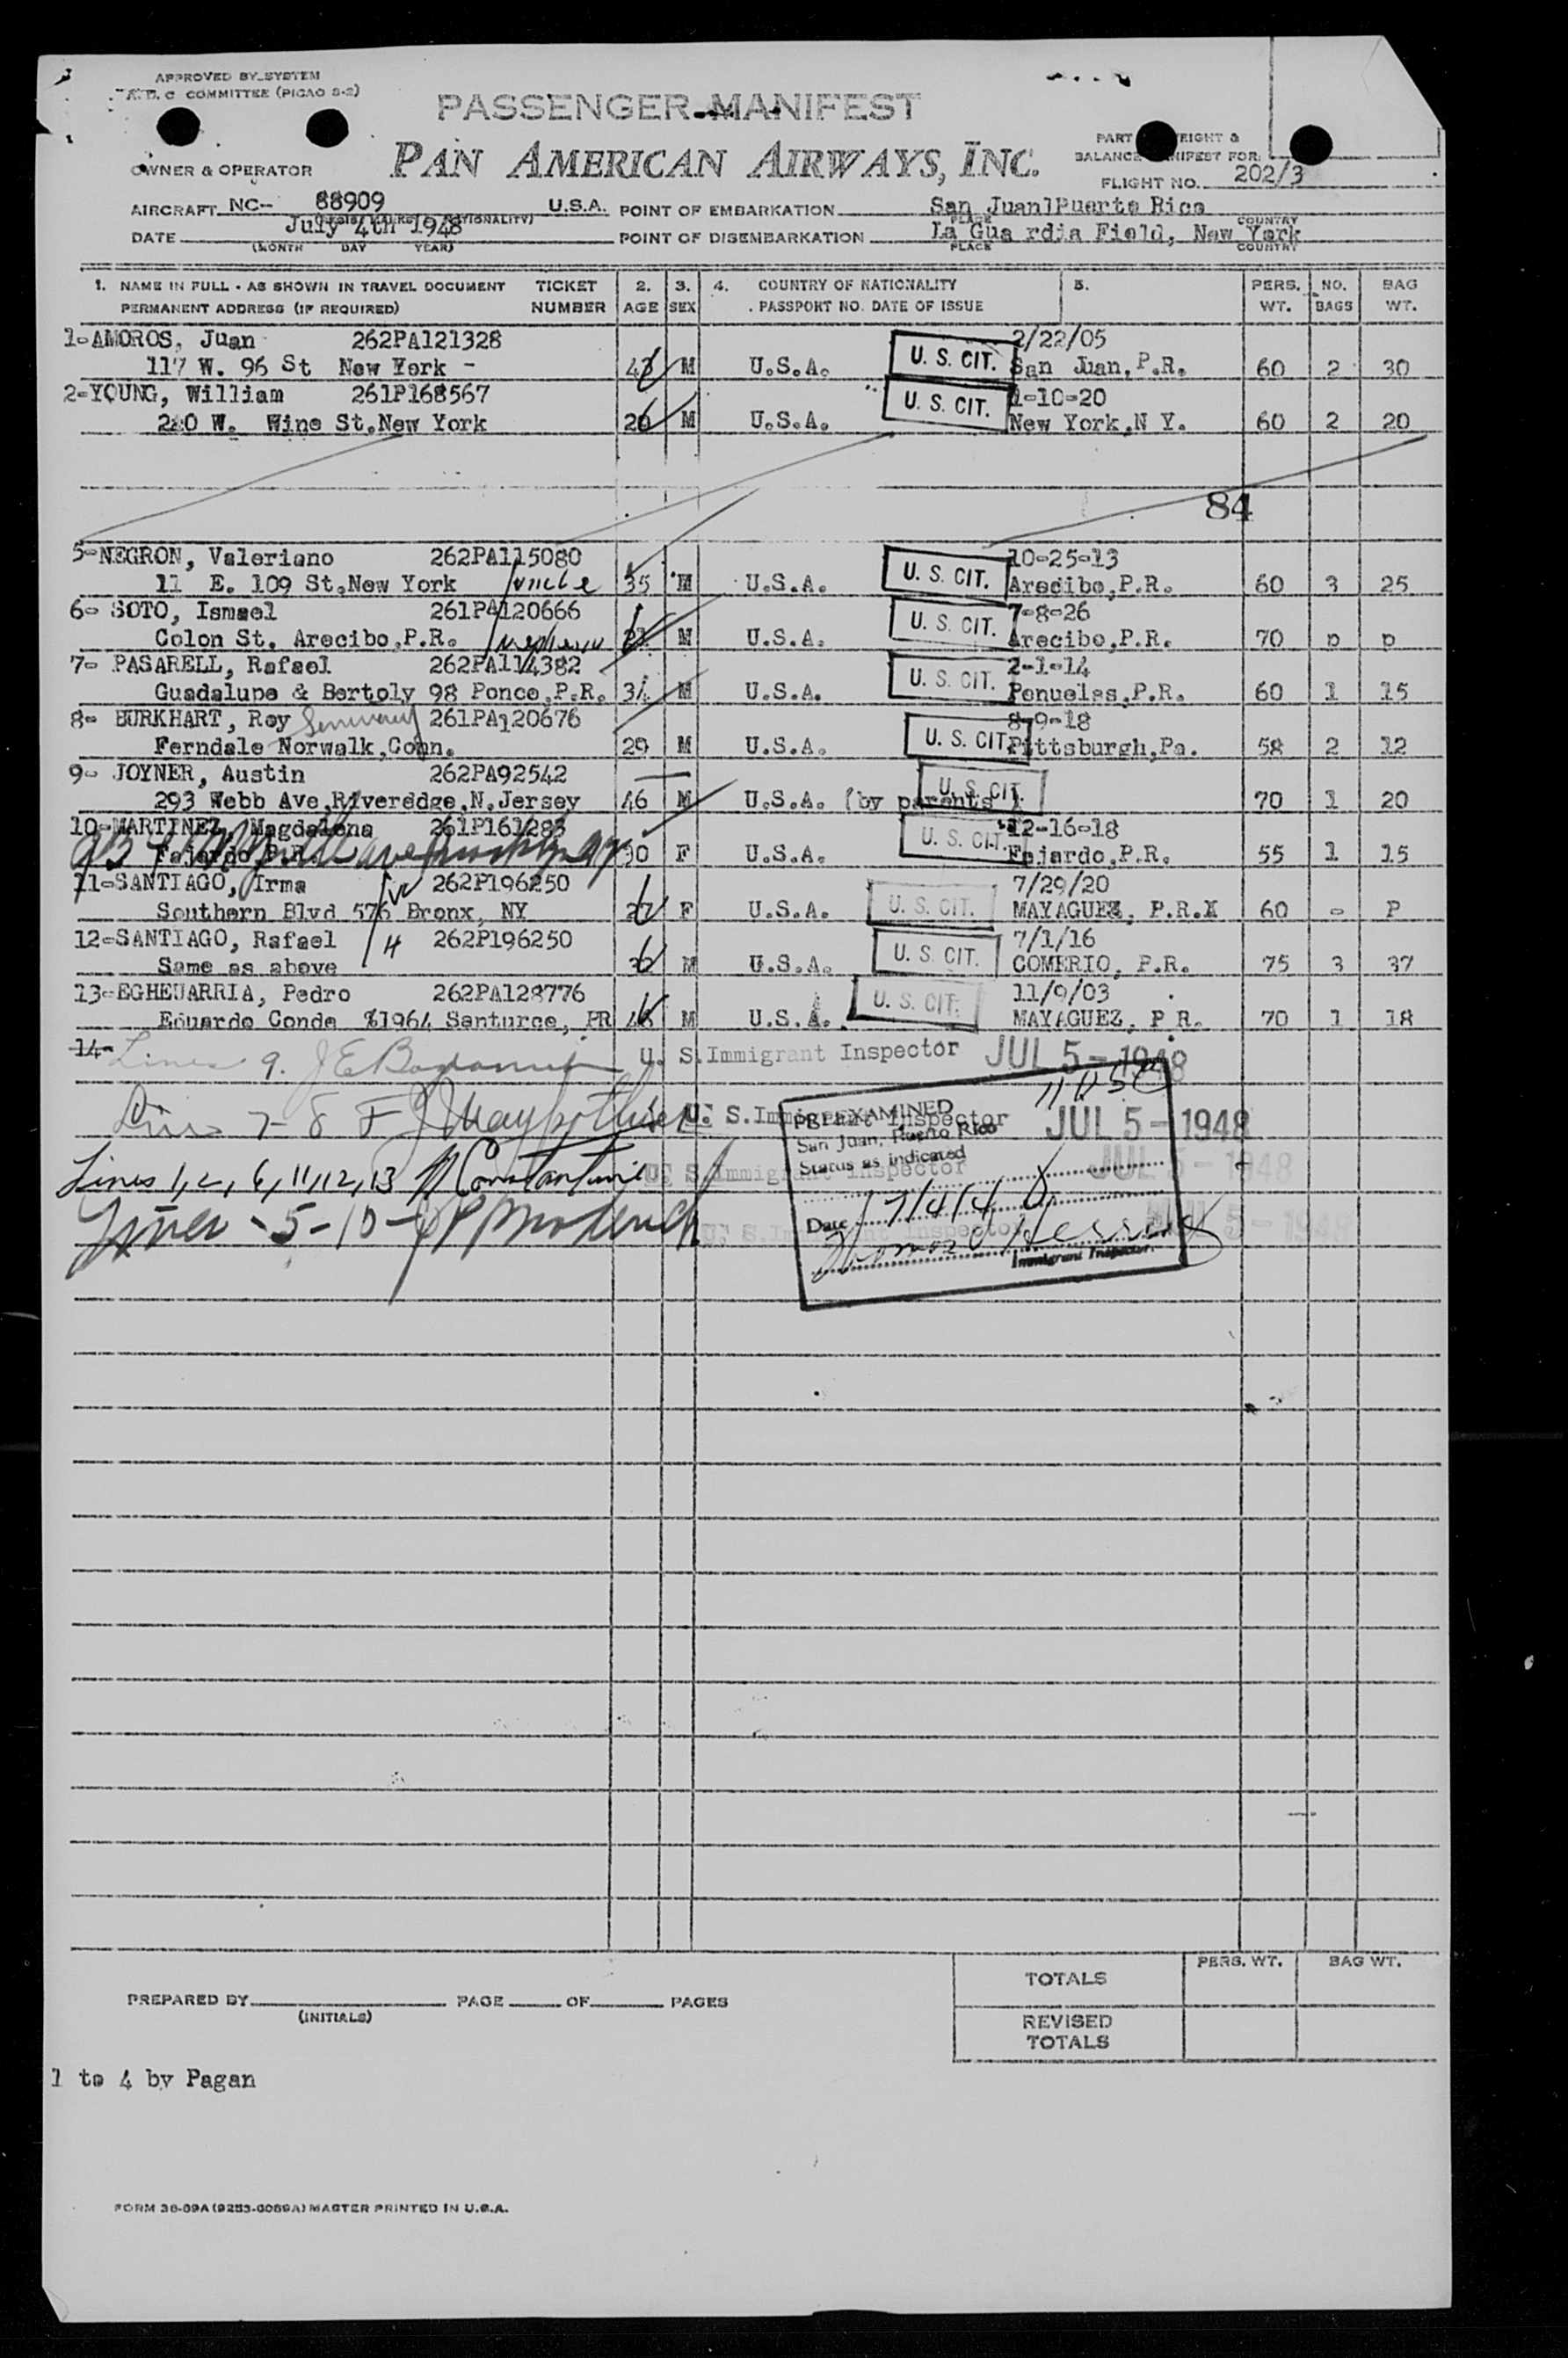 APPROVED BY SYSTEM
COMMITTEE (PICAO S-2)
PASSENGER MANIFEST
PAN AMERICAN AIRWAYS, INC.
OWNER & OPERATOR
PART WEIGHT &
BALANCE MANIFEST FOR:
FLIGHT NO. 202/3
AIRCRAFT NC- 88909 U.S.A. POINT OF EMBARKATION San Juan]Puerto Rico
PLACE COUNTRY
DATE July 4th 1948 POINT OF DISEMBARKATION La Gua rdia Field, New York
(MONTH DAY YEAR) PLACE COUNTRY
1. NAME IN FULL - AS SHOWN IN TRAVEL DOCUMENT TICKET 2. 3. 4. COUNTRY OF NATIONALITY 5. PERS. NO. BAG
PERMANENT ADDRESS (IF REQUIRED) NUMBER AGE SEX PASSPORT NO. DATE OF ISSUE WT. BAGS WT.
1-AMOROS, Juan 262PA121328 2/22/05
117 W. 96 St New York - M U.S.A. U. S. CIT. San Juan,P.R. 60 2 30
2-YOUNG, William 261P168567 1-10-20
W. Wine St.New York M U.S.A. U. S. CIT. New York,N Y. 60 2 20
84
5-NEGRON, Valeriano 262PA115080 10-25-13
11 E. 109 St.New York uncle 35 M U.S.A. U. S. CIT. Arecibo,P.R. 60 3 25
6- SOTO, Ismael 261PA120666 7-8-26
Colon St. Arecibo,P.R. nephew 21 M U.S.A. U. S. CIT. Arecibo,P.R. 70 p p
7- PASARELL, Rafael 262PA114382 2-1-14
Guadalupe & Bertoly 98 Ponce,P.R. 34 M U.S.A. U. S. CIT. Penuelas,P.R. 60 1 15
8- BURKHART, Roy 261PA120676 8-9-18
Ferndale Norwalk,Conn. 29 M U.S.A. U. S. CIT. Pittsburgh,Pa. 58 2 12
9- JOYNER, Austin 262PA92542
293 Webb Ave,Riveredge,N.Jersey 46 M U.S.A. (by parents ) U. S. CIT. 70 1 20
10-MARTINEZ, Magdalena 261P161283 12-16-18
Fajardo P.R. 30 F U.S.A. U. S. CIT. Fajardo,P.R. 55 1 15
11-SANTIAGO, Irma W 262P196250 7/29/20
Southern Blvd 576 Bronx, NY 27 F U.S.A. U. S. CIT. MAYAGUEZ, P.R.X 60 - P
12-SANTIAGO, Rafael H 262P196250 7/1/16
Same as above M U.S.A. U. S. CIT. COMERIO, P.R. 75 3 37
13-EGHEUARRIA, Pedro 262PA128776 11/9/03
Eduardo Conde #1964 Santurce, PR M U.S.A. U. S. CIT. MAYAGUEZ, P R. 70 1 18
14-
Lines 9. U. S.Immigrant Inspector JUL 5 - 1948
Lines 7-8 U. S.Immigrant Inspector JUL 5 - 1948
PREEXAMINED
San Juan, Puerto Rico
Status as indicated
Lines 1,2, 6, 11,12,13 N Constantine U. S.Immigrant Inspector JUL 5 - 1948
Lines - 5-10- U. S.Immigrant Inspector JUL 5 - 1948
Date 7/4/48
Immigrant Inspector.
TOTALS PERS. WT. BAG WT.
PREPARED BY PAGE OF PAGES
(INITIALS)
REVISED
TOTALS
1 to 4 by Pagan
FORM 36-09A (9253-0089A) MASTER PRINTED IN U.S.A.